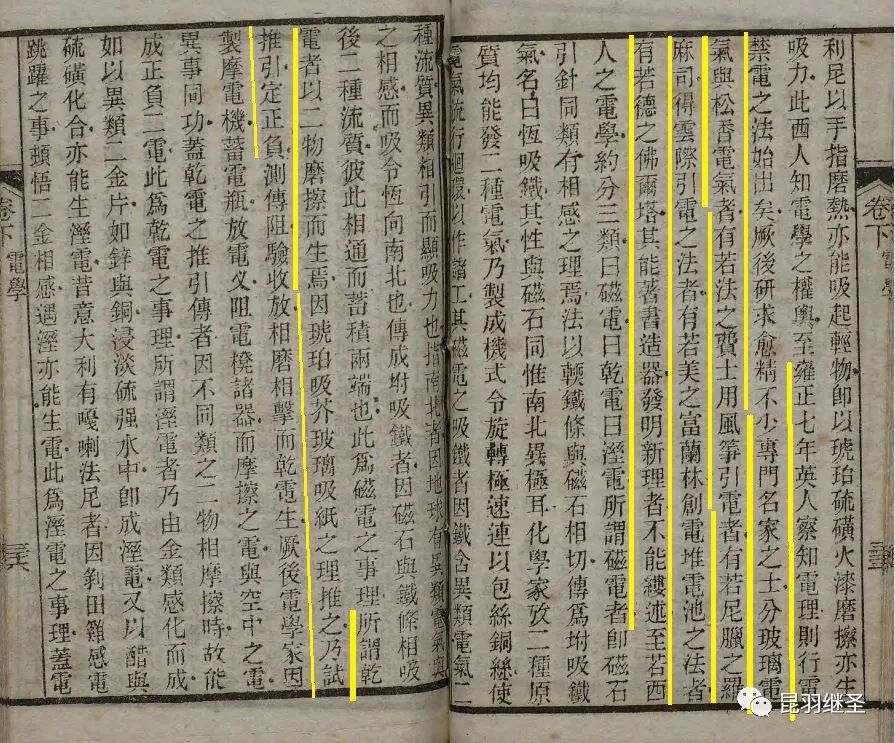 利尼以手指磨熱亦能吸起輕物卽以琥珀硫磺火漆磨擦亦生
吸力此西人知電學之權輿至雍正七年英人察知電理則行電
禁電之法始出矣厥後研求愈精不少專門名家之士分玻璃電
氣與松香電氣者有若法之費士用風箏引電者有若尼臘之羅
麻司得雲際引電之法者有若美之富蘭林創電堆電池之法者
有若德之佛爾塔其能著書造器發明新理者不能縷述至若西
人之電學約分三類曰磁電曰乾電曰溼電所謂磁電者卽磁石
引針同類有相感之理焉法以輭鐵條與磁石相切傳爲坿吸鐵
氣名曰恆吸鐵其性與磁石同惟南北異極耳化學家攷二種原
質均能發二種電氣乃製成機式令旋轉極速連以包絲銅絲使
電氣流行迴環以作諸工其磁電之吸鐵者因鐵含異類電氣二
種流質異類相引而顯吸力也指南北者因地球有異類電氣與
之相感而吸令恆向南北也傳成坿吸鐵者因磁石與鐵條相吸
後二種流質彼此相通而蓄積兩端也此爲磁電之事理所謂乾
電者以二物磨擦而生焉因琥珀吸芥玻璃吸紙之理推之乃試
推引定正負測傳阻驗收放相磨相擊而乾電生厥後電學家因
製摩電機蓄電瓶放電义阻電櫈諸器而摩擦之電與空中之電
異事同功蓋乾電之推引傳者因不同類之二物相摩擦時故能
成正負二電此爲乾電之事理所謂溼電者乃由金類感化而成
如以異類二金片如鋅與銅浸淡硫强水中卽成溼電又以醋與
硫磺化合亦能生溼電昔意大利有嘎喇法尼者因剝田雞感電
跳躍之事頓悟二金相感遇溼亦能生電此爲溼電之事理蓋電
卷下 電學
昆羽继圣